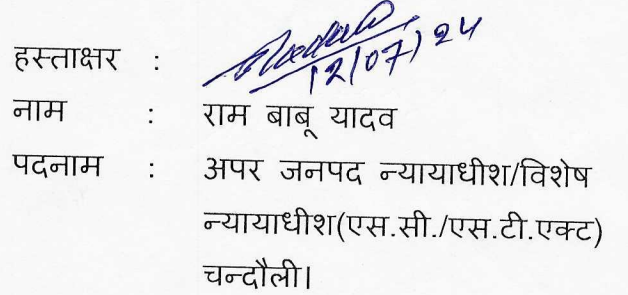 हस्ताक्षर :
12/07/24
नाम : राम बाबू यादव
पदनाम : अपर जनपद न्यायाधीश/विशेष
न्यायाधीश(एस.सी./एस.टी.एक्ट)
चन्दौली।